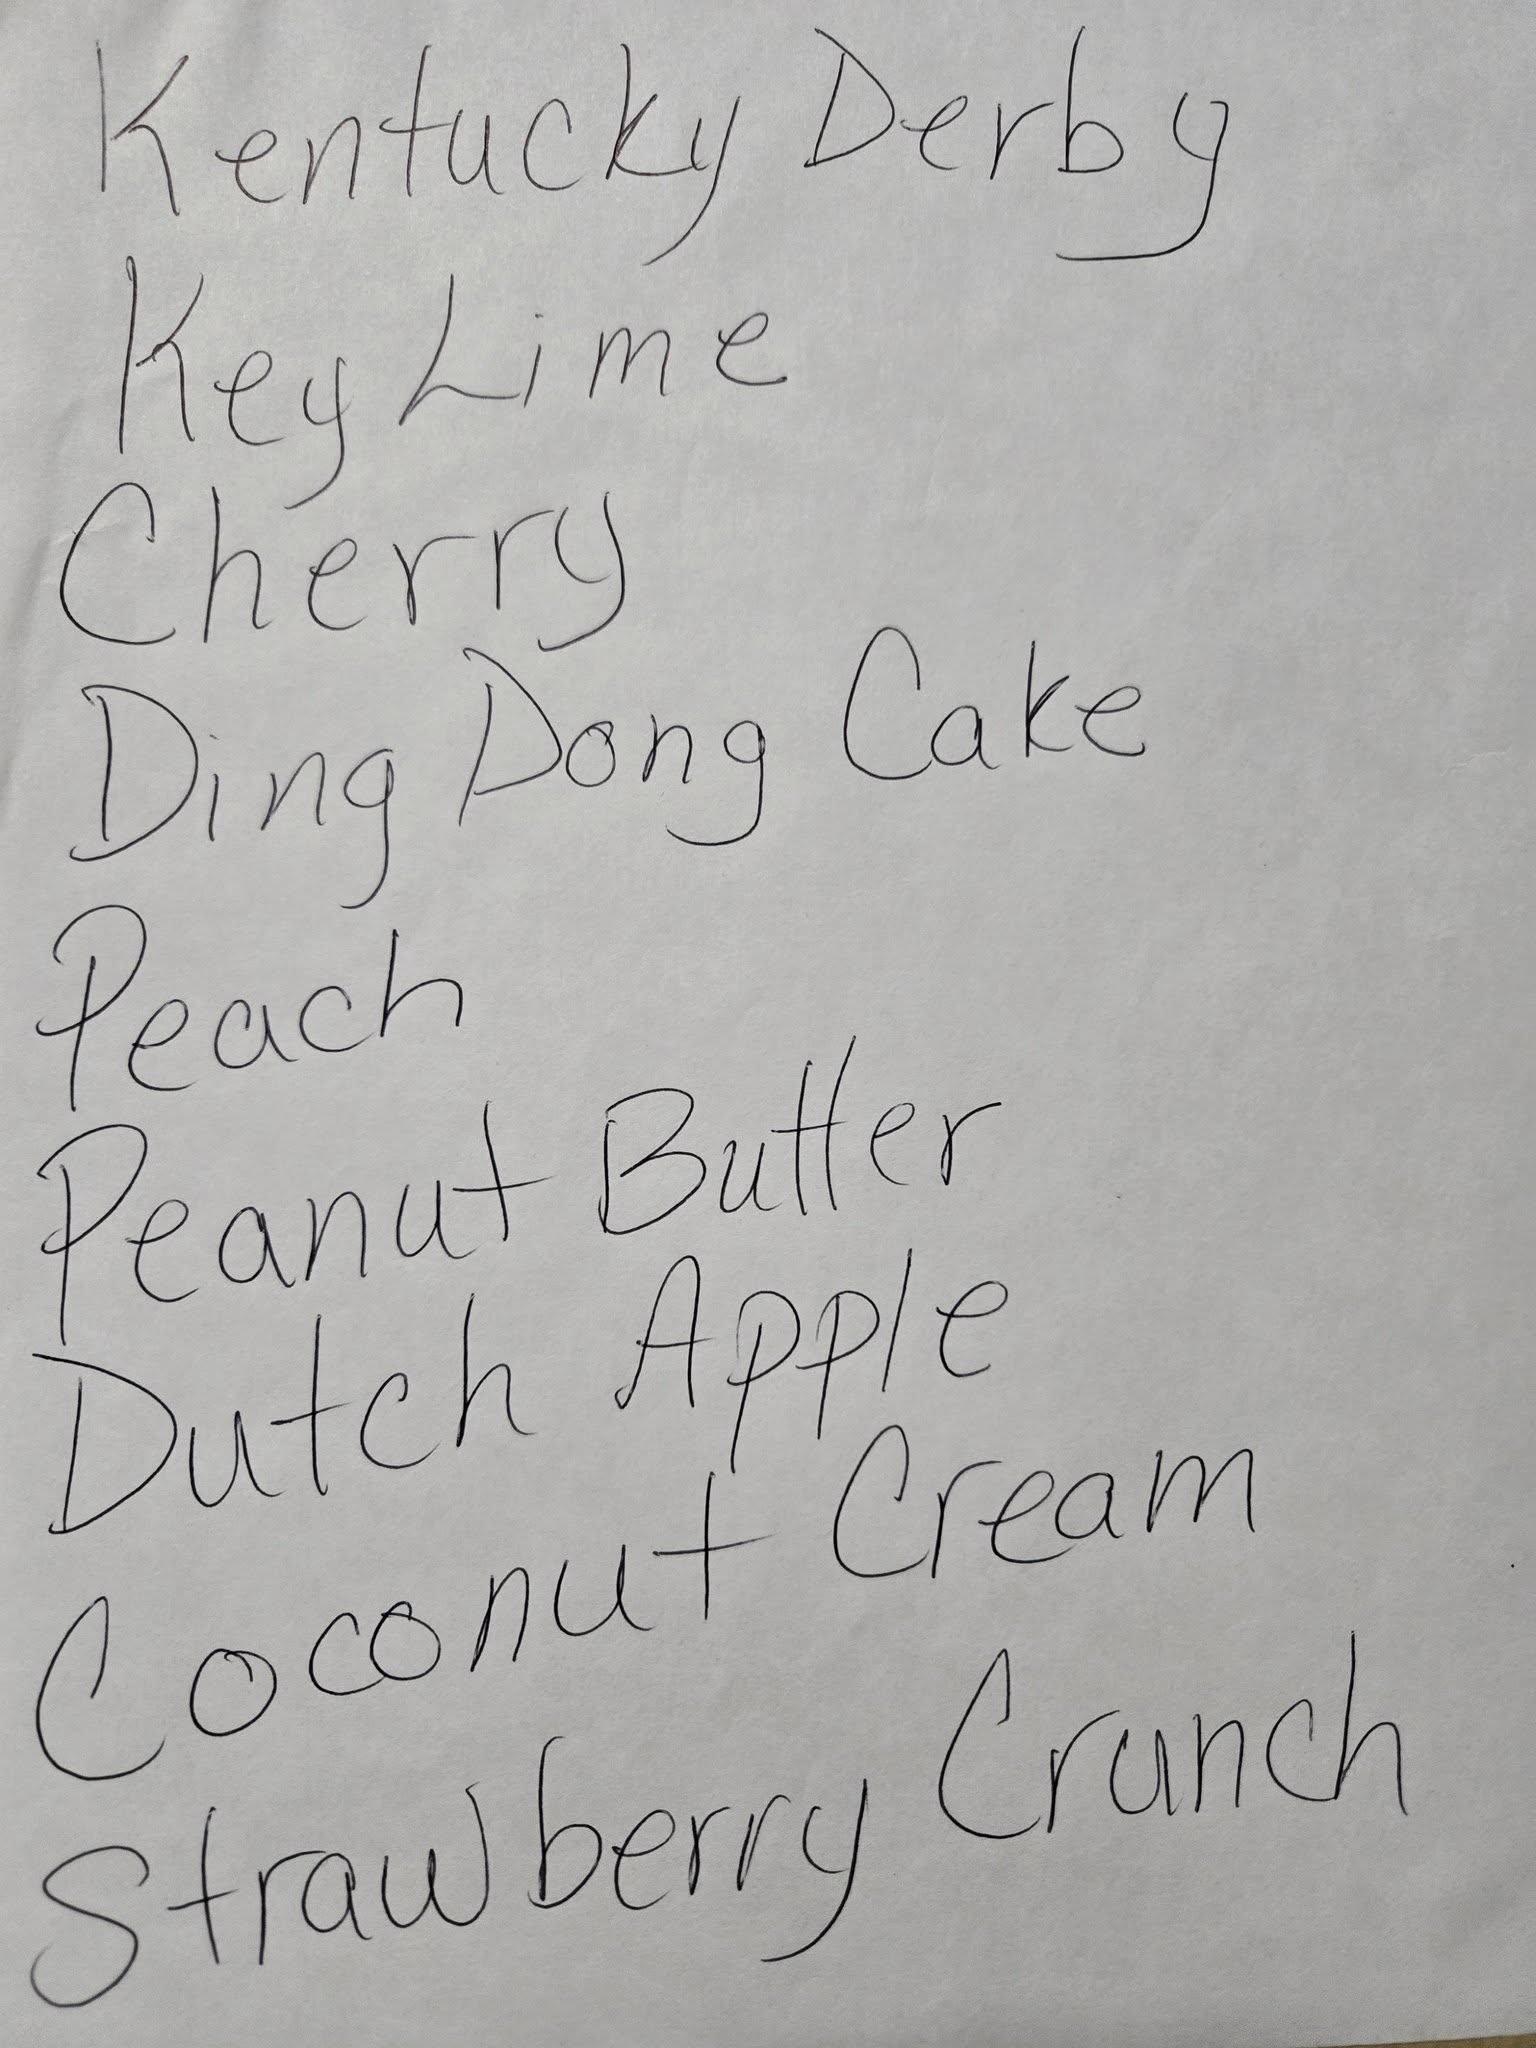 Kentucky Derby
Key Lime
Cherry
Ding Dong Cake
Peach
Peanut Butter
Dutch Apple
Coconut Cream
Strawberry Crunch